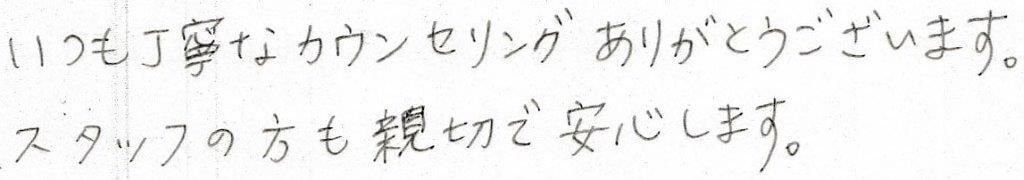 いつも丁寧なカウンセリングありがとうございます。
スタッフの方も親切で安心します。